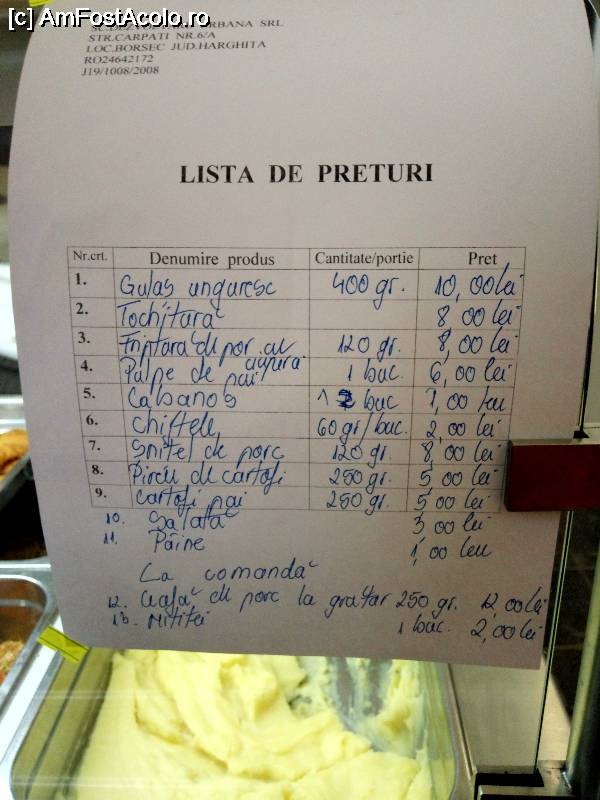 [c] AmFostAcolo.ro
URBANA SRL
STR.CARPATI NR.6/A
LOC.BORSEC JUD.HARGHITA
RO24642172
J19/1008/2008
LISTA DE PRETURI
Nr.crt. Denumire produs Cantitate/portie Pret
1. Gulaș unguresc 400 gr. 10,00 lei
2. Tochitură 8,00 lei
3. Friptură de porc cu usturoi 120 gr. 8,00 lei
4. Pulpe de pui 1 buc. 6,00 lei
5. Cabanos 1 buc 1,00 leu
6. Chiftele 60 gr/buc. 2,00 lei
7. Șnițel de porc 120 gr. 8,00 lei
8. Pireu de cartofi 250 gr. 5,00 lei
9. Cartofi pai 250 gr. 5,00 lei
10. Salată 3,00 lei
11. Pâine 1,00 leu
La comandă
12. Ceafă de porc la grătar 250 gr. 12,00 lei
13. Mititei 1 buc. 2,00 lei